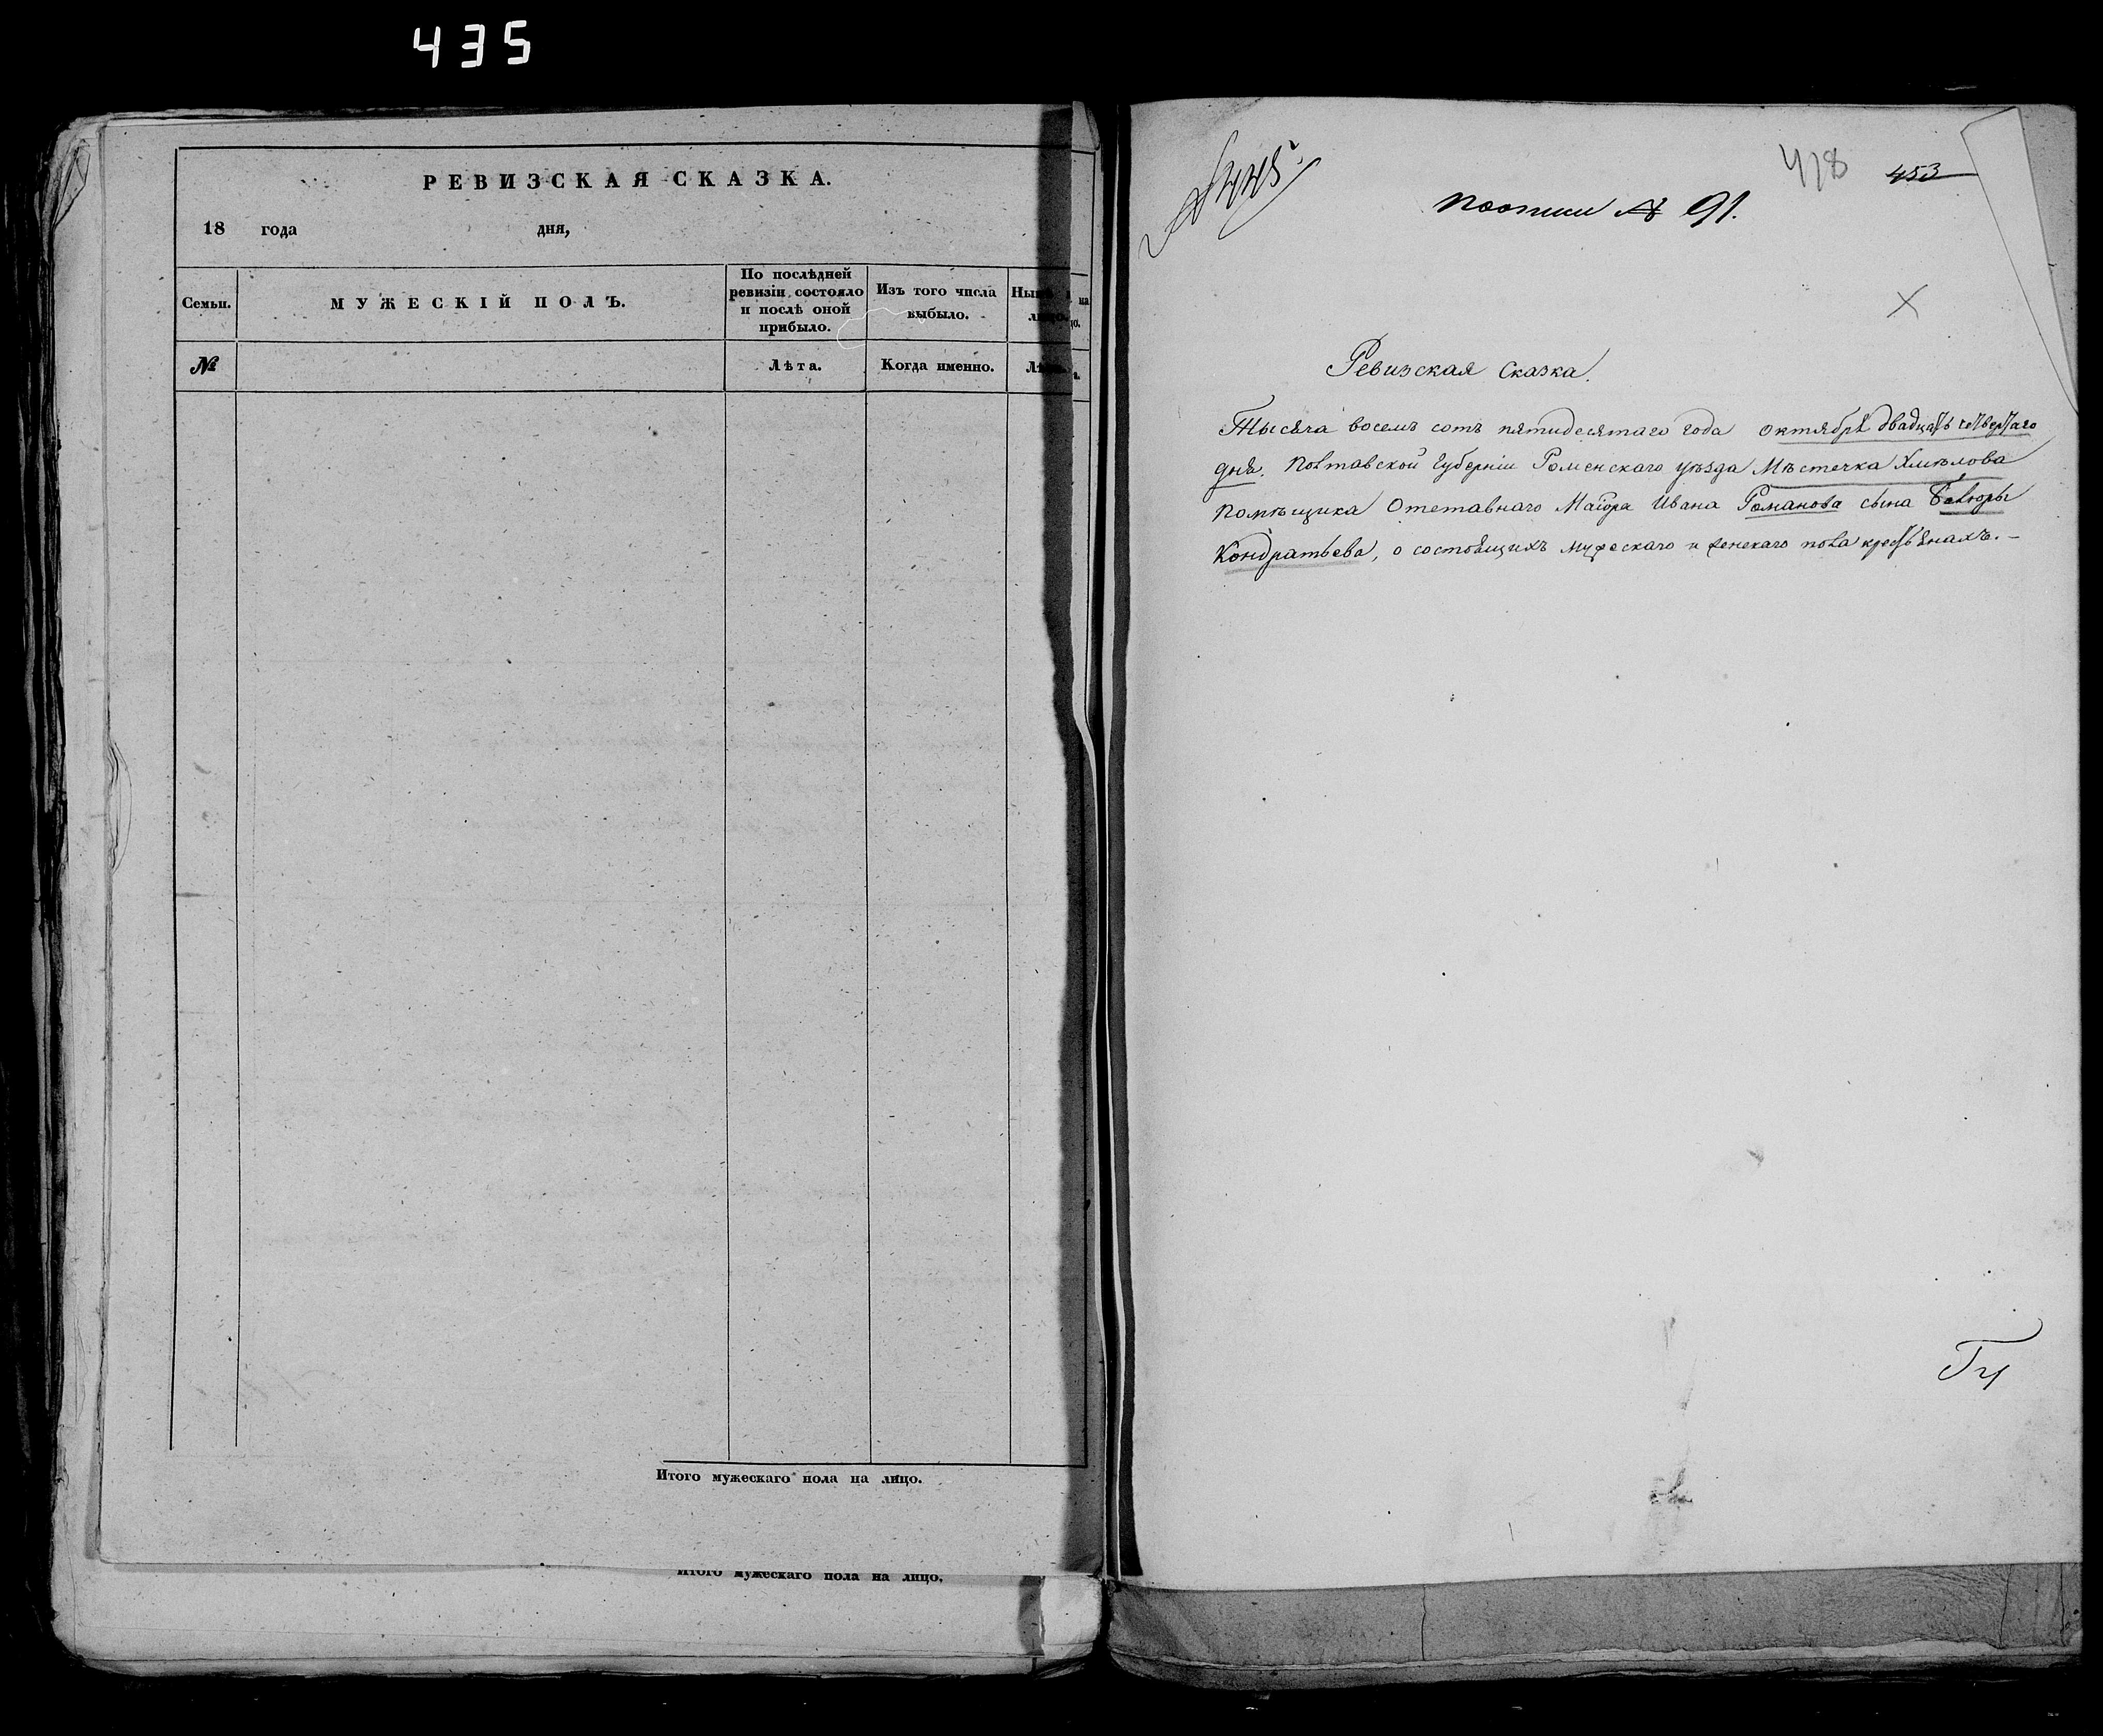 435
РЕВИЗСКАЯ СКАЗКА.
18 года дня,
Семьи.
МУЖЕСКІЙ ПОЛЪ.
По послѣдней
ревизіи состояло
и послѣ оной
прибыло.
Изъ того числа
выбыло.
№
Лѣта.
Когда именно.
Итого мужескаго пола на лицо.
Итого мужескаго пола на лицо.
418 453
№ 91.
Ревизская Сказка.
Тысяча восемъ сотъ пятидесятаго года октября двадцать четвертаго
дня. Полтавской Губерніи Роменскаго уѣзда Мѣстечка Хмѣлова
Помѣщика Отставнаго Маіора Ивана Романова сына
Кондратьева, о состоящихъ мужескаго и женскаго пола крестьянахъ.-